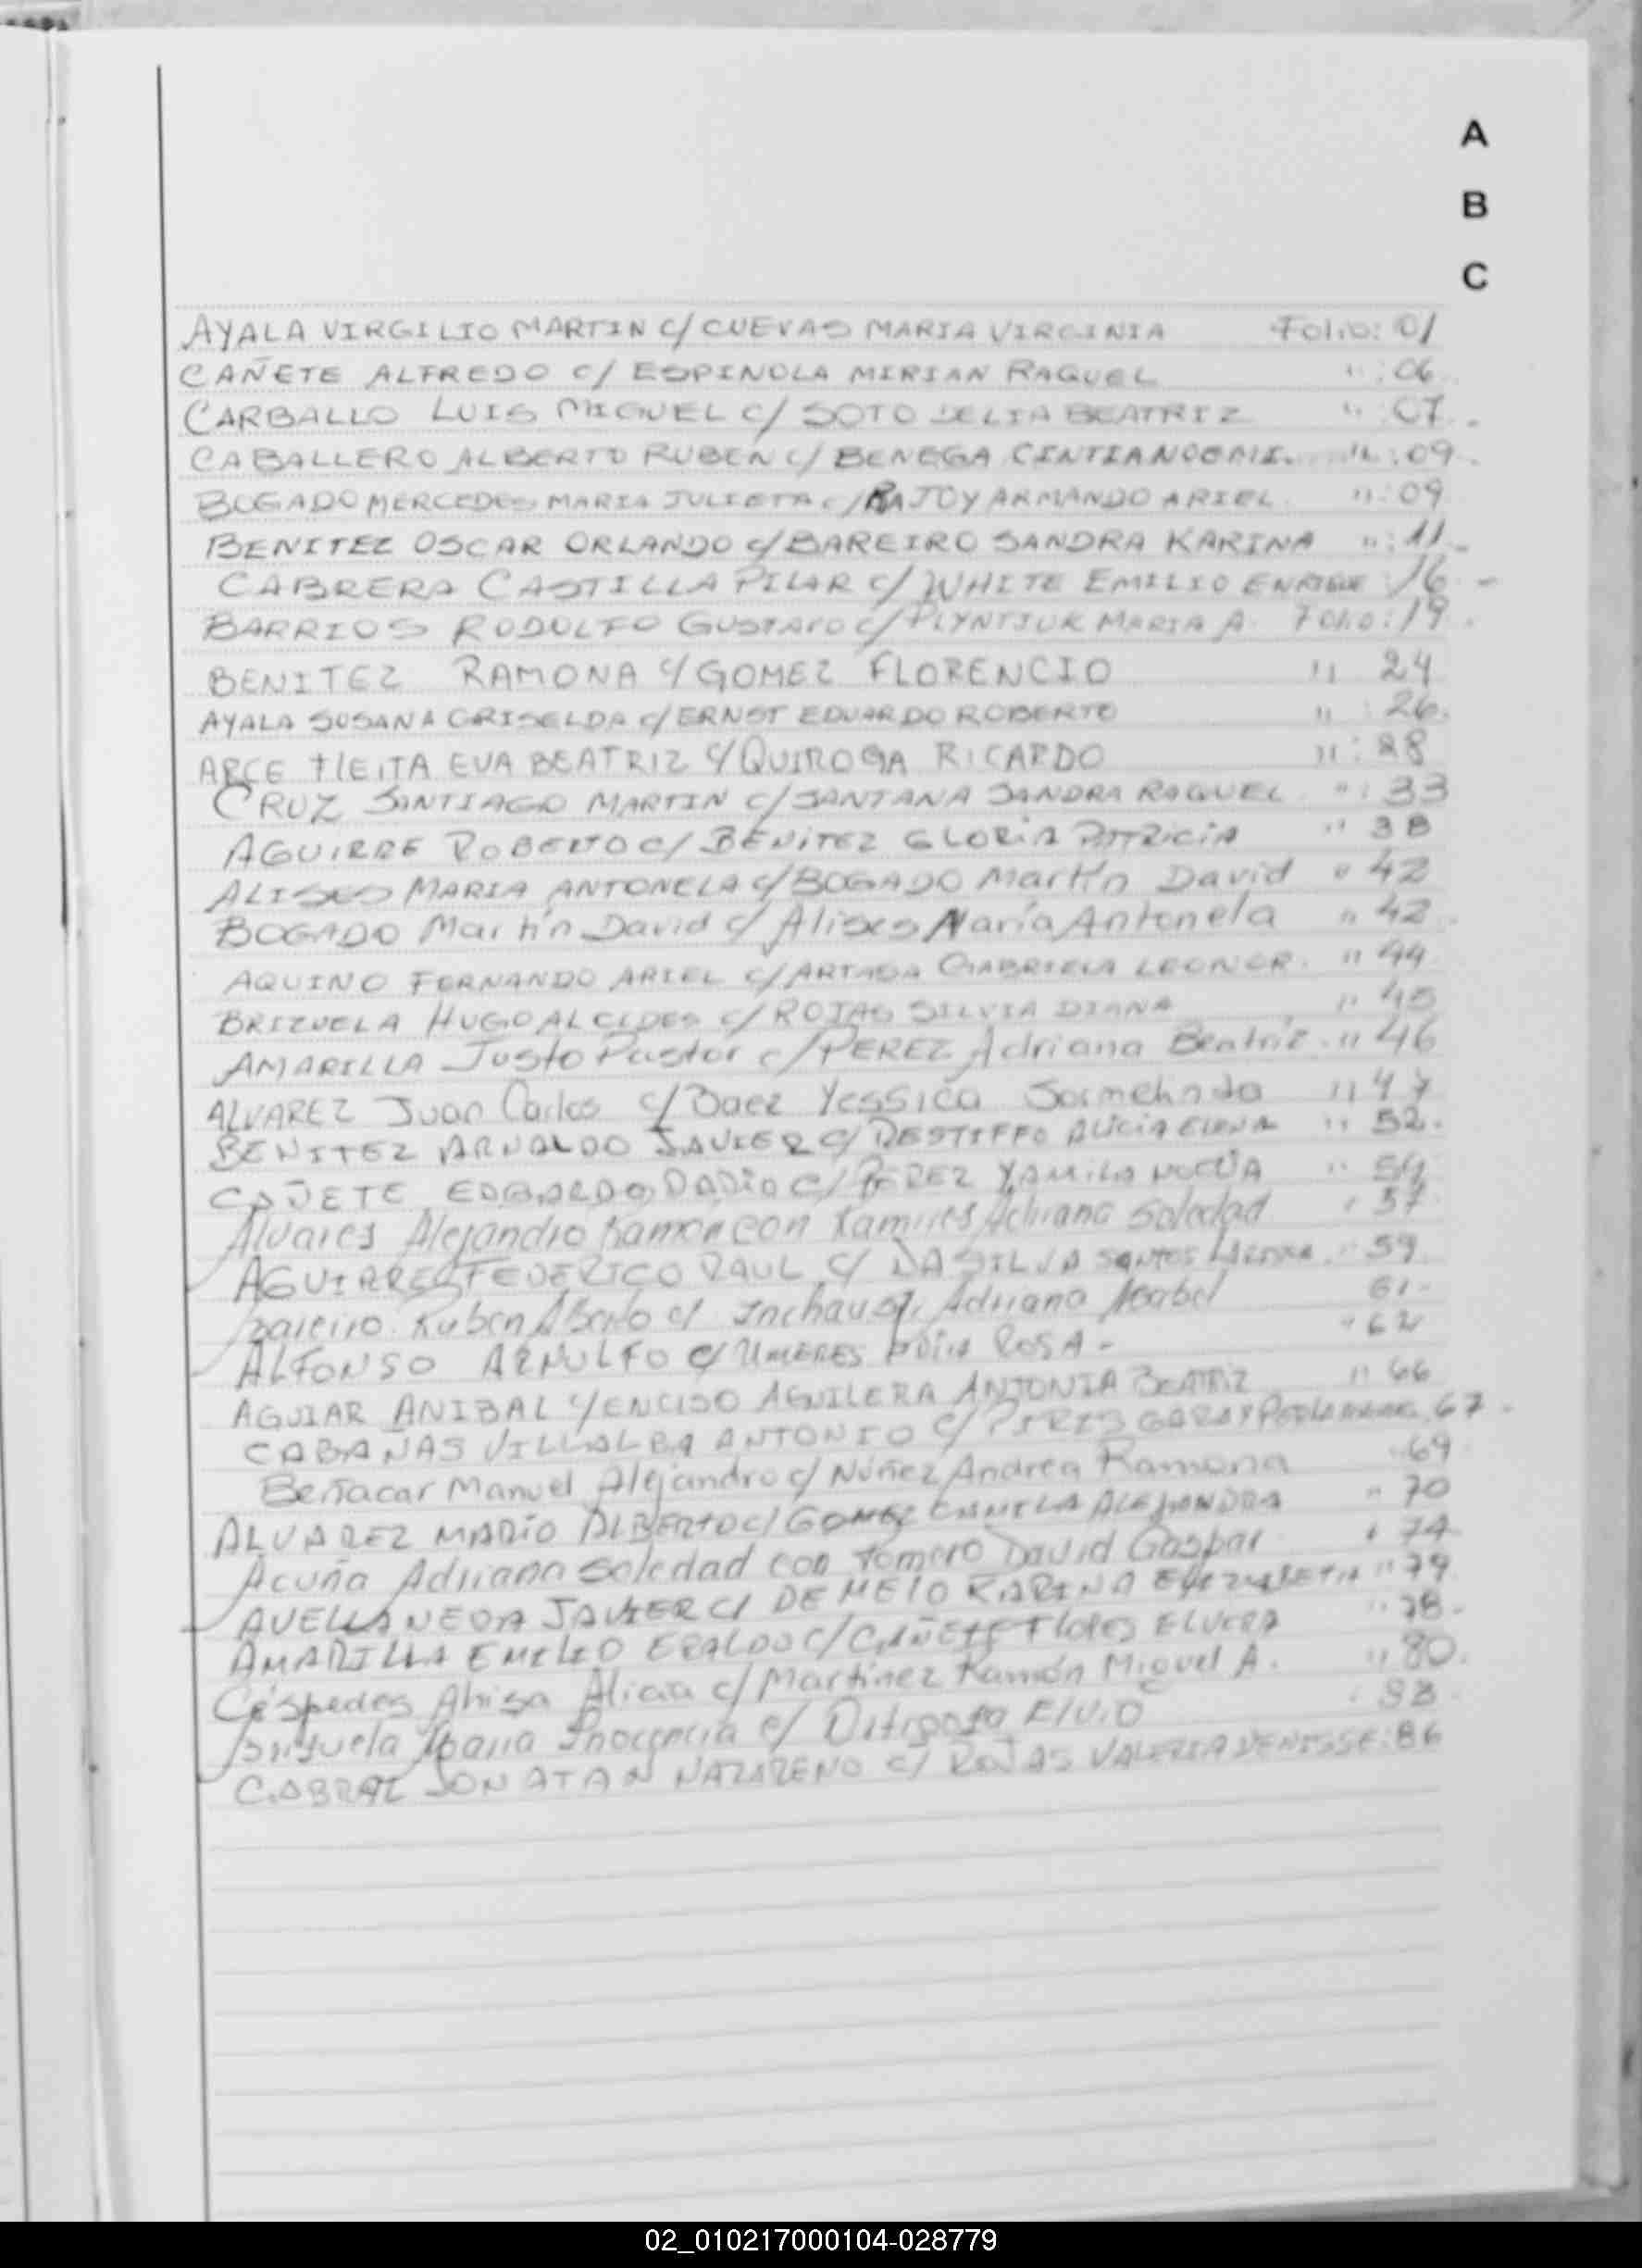 A
B
C
AYALA VIRGILIO MARTIN C/ CUEVAS MARIA VIRGINIA Folio: 01
CAÑETE ALFREDO C/ ESPINOLA MIRIAN RAQUEL " : 06
CARBALLO LUIS MIGUEL C/ SOTO DELIA BEATRIZ " : 07.
CABALLERO ALBERTO RUBEN C/ BENEGA CINTIA NOEMI. " : 09.
BOGADO MERCEDES MARIA JULIETA C/ RAJOY ARMANDO ARIEL. " : 09
BENITEZ OSCAR ORLANDO C/ BAREIRO SANDRA KARINA " : 11
CABRERA CASTILLA PILAR C/ WHITE EMILIO ENRIQUE 16 -
BARRIOS RODOLFO GUSTAVO C/ PLYNTJUK MARIA A. Folio: 19.
BENITEZ RAMONA C/ GOMEZ FLORENCIO " 24
AYALA SUSANA GRISELDA C/ ERNST EDUARDO ROBERTO " : 26.
ARCE FLEITA EVA BEATRIZ C/ QUIROGA RICARDO " : 28
CRUZ SANTIAGO MARTIN C/ SANTANA SANDRA RAQUEL " : 33
AGUIRRE ROBERTO C/ BENITEZ GLORIA PATRICIA " 38
ALISES MARIA ANTONELA C/ BOGADO Martín David " 42
BOGADO Martín David C/ Alises María Antonela " 42.
AQUINO FERNANDO ARIEL C/ GABRIELA LEONOR. " 44
BRIZUELA HUGO ALCIDES C/ ROJAS SILVIA DIANA " 45
AMARILLA Justo Pastor C/ PEREZ Adriana Beatriz " 46
ALVAREZ Juan Carlos C/ Baez Yessica " 47
BENITEZ ARNALDO JAVIER C/ DESTIFFO ALICIA ELENA " 52.
CAÑETE EDGARDO DARIO C/ PEREZ YAMILA " 54
Alvares Alejandro Ramon con Ramires Adriana Soledad 57
AGUIRRE FEDERICO RAUL C/ DA SILVA SANTOS 59
Bareiro Ruben Alberto C/ Inchausti Adriana Isabel 61-
ALFONSO ARNULFO C/ ROSA - " 62
AGUIAR ANIBAL C/ ENCISO AGUILERA ANTONIA BEATRIZ " 66
CABAÑAS VILLALBA ANTONIO C/ PIRIS GARAY 67.
Beñacar Manuel Alejandro C/ Núñez Andrea Ramona 69
ALVAREZ MARIO ALBERTO C/ GOMEZ ALEJANDRA " 70
Acuña Adriana Soledad con Romero David Gaspar 74
AVELLANEDA JAVIER C/ DE MELO KARINA ELIZABETH "
AMARILLA EMILIO ERALDO C/ CAÑETE Flores ELVIRA " 78.
Céspedes Alicia C/ Martínez Ramón Miguel A. " 80.
Brisuela Inocencia C/ Elvio
CABRAL JONATAN NAZARENO C/ ROJAS VALERIA DENISSE: 86
02_010217000104-028779